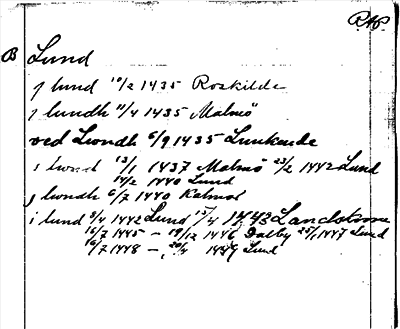 RAP.
B Lund
j lund 10/2 1435 Roskilde
j lundh 11/4 1435 Malmö
ved Lwondh 6/9 1435
i lwond 13/1 1437 Malmö 23/2 1442 Lund
14/2 1440 Lund
j lwondh 6/7 1440 Kalmar
i lund 3/4 1442 Lund 15/4 1443 Landskrone
16/7 1445 – 19/12 1446 Dalby 25/1 1447 Lund
16/7 1448 – 20/4 1449 Lund